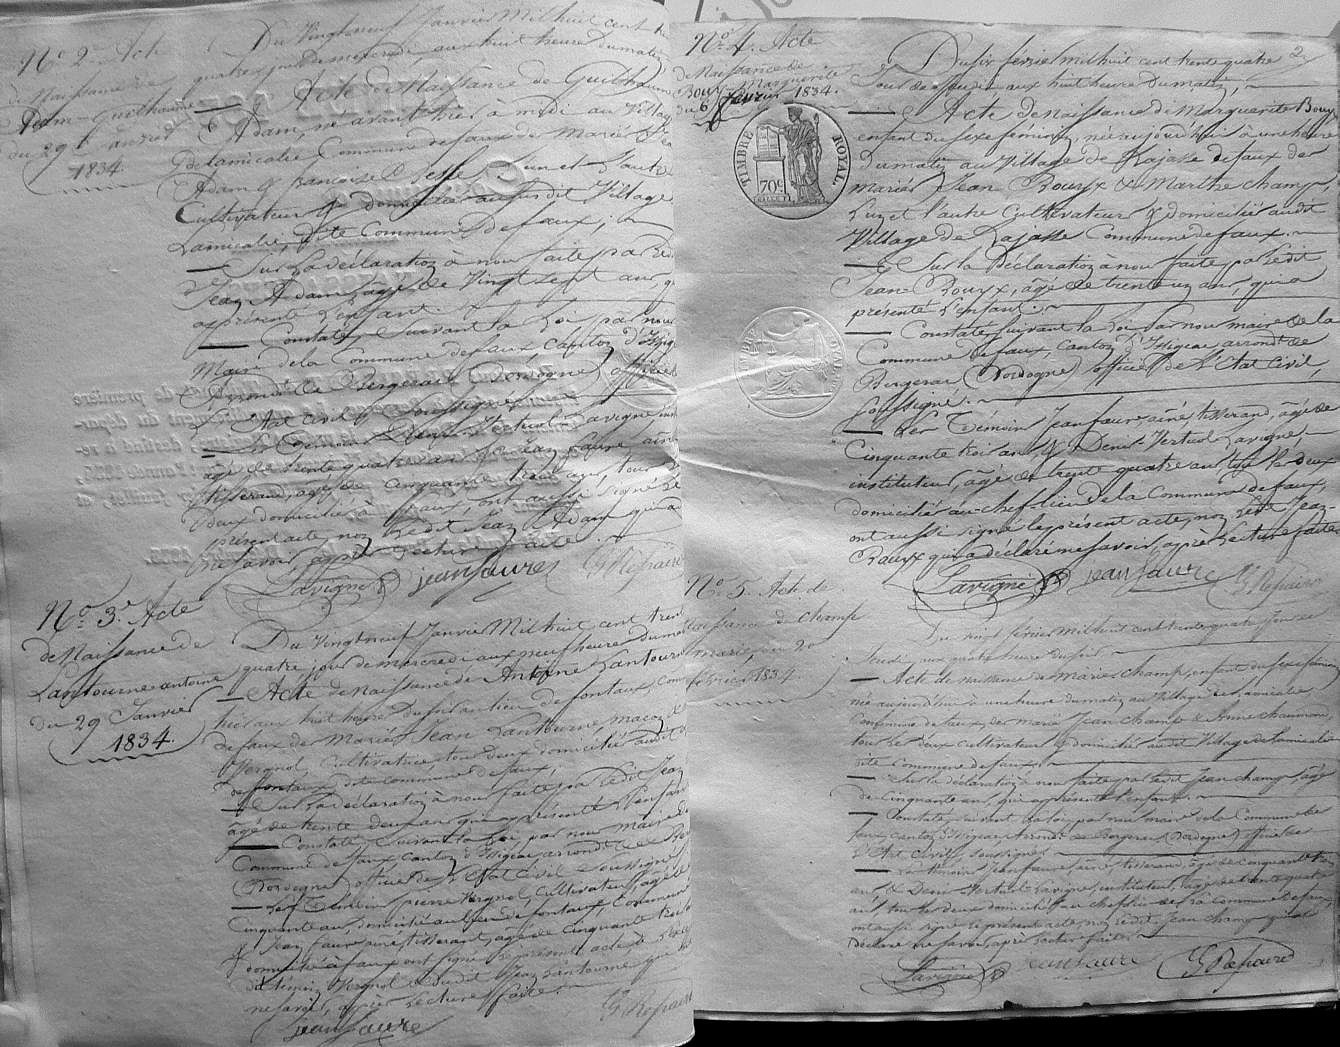 N.o 2. Acte
de Naissance de
Adam Guilhaume
du 29 Janvier
1834.
Du Vingtneuf Janvier Mil huit cent
quatre jour de mercredi aux huit heure du matin
Acte de Naissance de Guilhaume
Adam, né avant hier à midi au Village
de Lamicalie Commune de faux de Mariés
Adam & françoise L'un et L'autre
Cultivateur & domicilié au susdit Village
Lamicalie, dite Commune de faux; —
— Sur La déclaration à nous faite par Ledit
Jean Adam, agé de Vingt sept ans, qui
a présenté L'enfant. —
— Constaté, suivant La Loi par nous
Maire de la Commune de faux canton d'Issigeac
arrond.t de Bergerac (Dordogne) officier
L'Etat Civil Soussigné. —
— Les Témoins Denis Vertiol Lavigne
agé de trente quatre ans & Jean faure ainé
tisserand, agé de cinquante trois ans tous Les
deux domiciliés à faux, ont aussi signé Le
présent acte, non Ledit Jean Adam qui a
ne savoir, après Lecture faite. —
Lavigne jean faure G Repaire
N.o 3. Acte
de Naissance de
Lantourne antoine
du 29 Janvier
1834.
Du Vingtneuf Janvier Mil huit cent trente
quatre jour de mercredi aux neuf heure du matin
— Acte de Naissance de Antoine Lantourne
hier aux huit heure du soir au lieu de fontaux, Commune
de faux de Mariés Jean Lantourne, maçon &
Vergnol, Cultivatrice, tous deux domicilié audit
de fontaux dite commune de faux,
— Sur La déclaration à nous faite par Ledit Jean
agé de trente deux ans qui a présenté L'enfant
— Constaté, suivant La Loi, par nous Maire de
Commune de faux Canton d'Issigeac arrond.t de
(Dordogne) officier de L'Etat Civil Soussigné
— Les Temoins pierre Vergnol, Cultivateur, agé de
Cinquante ans, domicilié au lieu de fontaux, Commune
& Jean faure ainé tisserant, agé de Cinquante trois
domicilié à faux ont signé Le présent acte
du témoin Vergnol & dudit Jean Lantourne qui
ne savoir, après Lecture faite. —
jean faure G Repaire
2.
N.o 4. Acte
de Naissance de
Bouyx Marguerite
du 6 fevrier 1834.
TIMBRE ROYAL
70c
Du six février Mil huit cent trente quatre
Jour de jeudi aux huit heure Du matin, —
— Acte de Naissance de Marguerite Bouyx
enfant du sexe feminin, née aujourd'hui à une heure
Du matin au Village de Lajasse de faux des
mariés Jean Bouyx & Marthe champ,
L'un et l'autre Cultivateur & domicilié audit
Village de Lajasse Commune de faux. —
— Sur la Déclaration à nous faite par Ledit
Jean Bouyx, agé de trente un ans, qui a
présenté L'enfant. —
— Constaté, suivant la Loi par nous maire de la
Commune de faux, canton d'Issigeac arrond.t de
Bergerac (Dordogne) officier de L'Etat Civil,
Soussigné. —
— Les Témoins Jean faure, ainé, tisserand, agé de
Cinquante trois ans & Denis Vertiol Lavigne, —
instituteur, agé de trente quatre ans tous Les deux
domiciliés au chef-Lieu de la Commune de faux,
ont aussi signé le présent acte, non Ledit Jean
Bouyx qui a déclaré ne savoir, après Lecture faite
Lavigne jean faure G Repaire
N.o 5. Acte de
Naissance de Champ
marie, du 20
février 1834.
Du vingt février Mil huit cent trente quatre jour de
Jeudi, aux quatre heure du soir. —
— Acte de Naissance de Marie champ, enfant du sexe féminin
née aujourd'hui à une heure du matin au Village de Lamicalie
Commune de faux des mariés Jean Champ & Anne chaumon
tous Les deux cultivateurs & domiciliés audit Village de Lamicalie
dite Commune de faux. —
— Sur la déclaration à nous faite par Ledit Jean champ agé
de Cinquante ans, qui a présenté l'enfant. —
— Constaté suivant la Loi par nous maire de la Commune de
faux, canton d'Issigeac, arrond.t de Bergerac (Dordogne) officier de
L'Etat Civil, soussigné. —
— Les témoins Jean faure, ainé, tisserand, agé de cinquante trois
ans, & Denis Vertiol Lavigne, instituteur, agé de trente quatre
ans, tous Les deux domiciliés au chef lieu de la commune de faux,
ont aussi signé le présent acte, non Ledit Jean champ qui a
déclaré ne savoir, après Lecture faite. —
Lavigne jean faure G Repaire